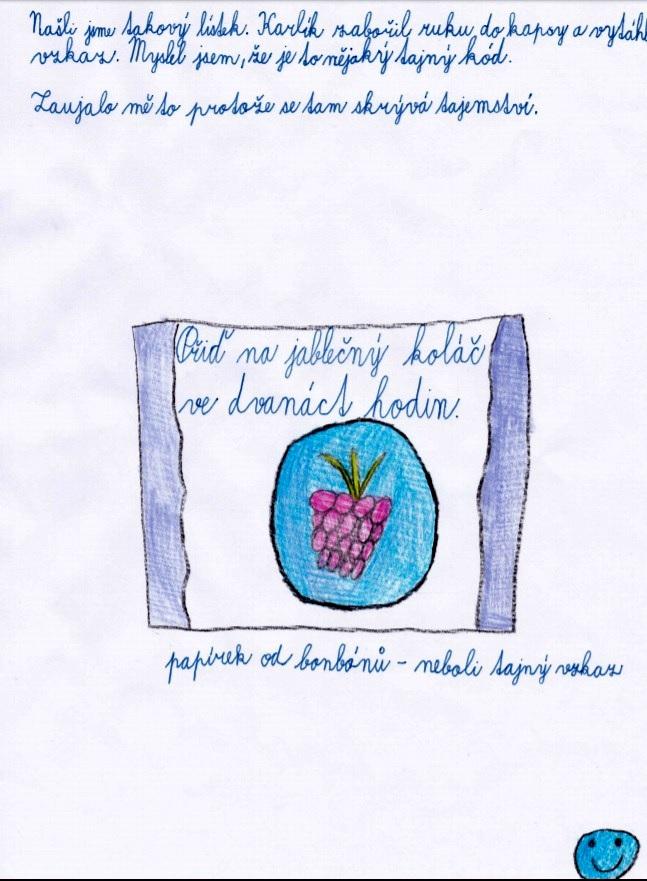 Našli jsme takový lístek. Karlík zabořil ruku do kapsy a vytáhl
vzkaz. Myslel jsem, že je to nějaký tajný kód.
Zaujalo mě to protože se tam skrývá tajemství.
Přiď na jablečný koláč
ve dvanáct hodin.
papírek od bonbónů - neboli tajný vzkaz